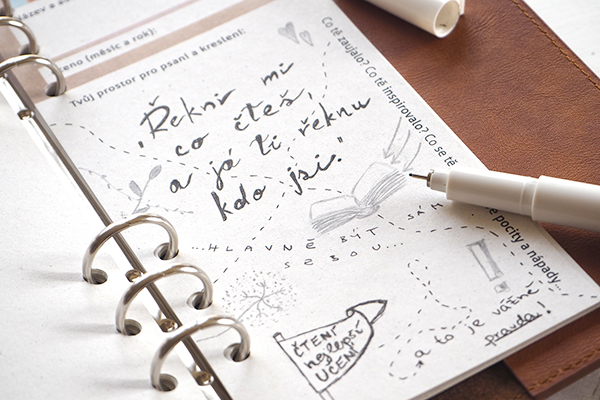 ázev a
eno (měsíc a rok):
Tvůj prostor pro psaní a kreslení:
"Řekni mi
co čteš,
a já ti řeknu
kdo jsi."
...HLAVNĚ BÝT SÁM
SEBOU...
Co tě zaujalo? Co tě inspirovalo? Co se tě
é pocity a nápady...
ČTENÍ
nejlepší
UČENÍ
a to je vážně
pravda!